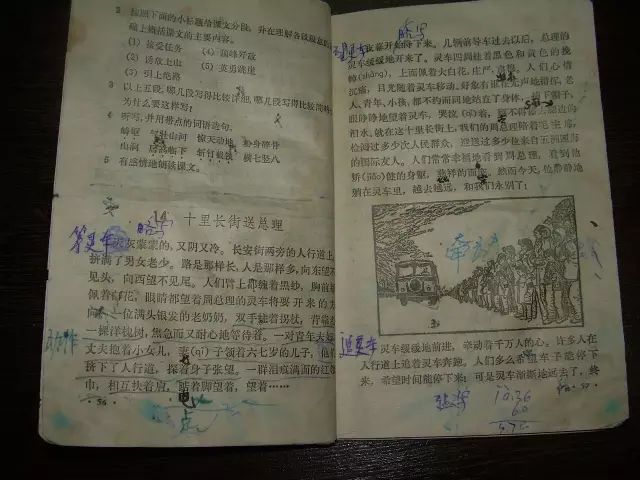 2 按照下面的小标题给课文分段,并在理解各段段意的基
础上概括课文的主要内容。
(1) 接受任务 (4) 顶峰歼敌
(2) 诱敌上山 (5) 英勇跳崖
(3) 引上绝路
3 以上五段,哪几段写得比较详细,哪几段写得比较简略
为什么要这样写?
4 听写,并用带点的词语造句。
崎岖 气壮山河 惊天动地 粉身碎骨
山涧 居高临下 斩钉截铁 横七竖八
5 有感情地朗读课文。
14 十里长街送总理
等灵车
天灰蒙蒙的,又阴又冷。长安街两旁的人行道上
挤满了男女老少。路是那样长,人是那样多,向东望不
见头,向西望不见尾。人们臂上都缠着黑纱,胸前
佩着白花,眼睛都望着周总理的灵车将要开来的方
向。一位满头银发的老奶奶,双手拄着拐杖,背靠
一棵洋槐树,焦急而又耐心地等待着。一对青年夫妇
丈夫抱着小女儿,妻(qī)子领着六七岁的儿子,他们
挤下了人行道,探着身子张望。一群泪痕满面的红领
巾,相互扶着肩,踮着脚望着,望着……
· 56 ·
开始静下来。几辆前导车过去以后,总理的
灵车缓缓地开来了。灵车四周挂着黑色和黄色的挽
幛(zhàng),上面佩着大白花,庄严,肃穆。人们心情
沉痛,目光随着灵车移动。好象有谁在无声地指挥。老
人、青年、小孩,都不约而同地站直了身体,摘下帽子,
眼睁睁地望着灵车,哭泣(qì)着,顾不得擦去腮边的
泪水。就在这十里长街上,我们的周总理陪着毛主席,
检阅过多少次人民群众,迎送过多少位来自五洲四海
的国际友人。人们常常幸福地看到周总理,看到他
矫(jiǎo)健的身躯,慈祥的面庞。然而今天,他静静地
躺在灵车里,越去越远,和我们永别了!
追灵车
灵车缓缓地前进,牵动着千万人的心。许多人在
人行道上追着灵车奔跑。人们多么希望车子能停下
来,希望时间能停下来!可是灵车渐渐地远去了,终
· 57 ·